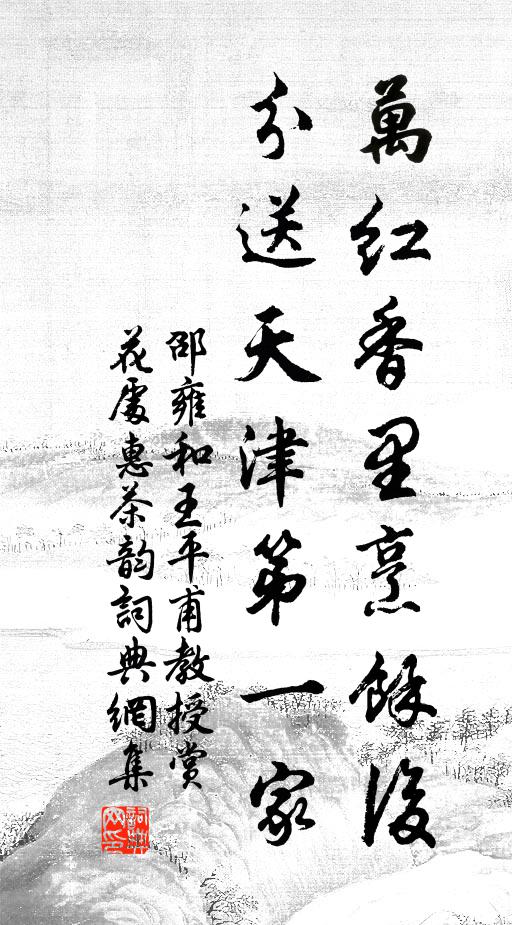 萬紅香里烹餘後
分送天津第一家
邵雍和王平甫教授賞
花處惠茶韵詞典網集